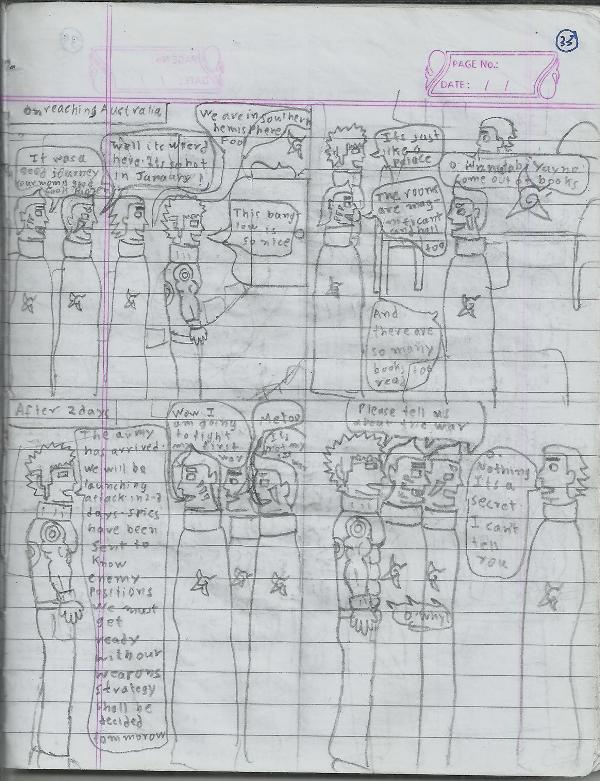 35
PAGE NO.:
DATE: / /
On reaching Australia
It was a
good journey
Your momma good
cook
Well its wierd
here. Its so hot
in January!
We are in southern
hemisphere
Fool
This bang
low is
so nice
Its just
like a
palace
The rooms
are mag
nificant
and hall
too
And
there are
so many
books too
read
O Wangdabi Yayne
come out of books
After 2 days
The army
has arrived.
we will be
launching
attack in 2-3
days - spies
have been
sent to
know
enemy
positions
We must
get
ready
with our
weapons
strategy
shall be
decided
tommorow
Wow I
am going
to fight
my first
war
Me too
Its
not my
Please tell us
about the war
O.
Nothing
Its a
secret.
I can't
tell
you
O why?